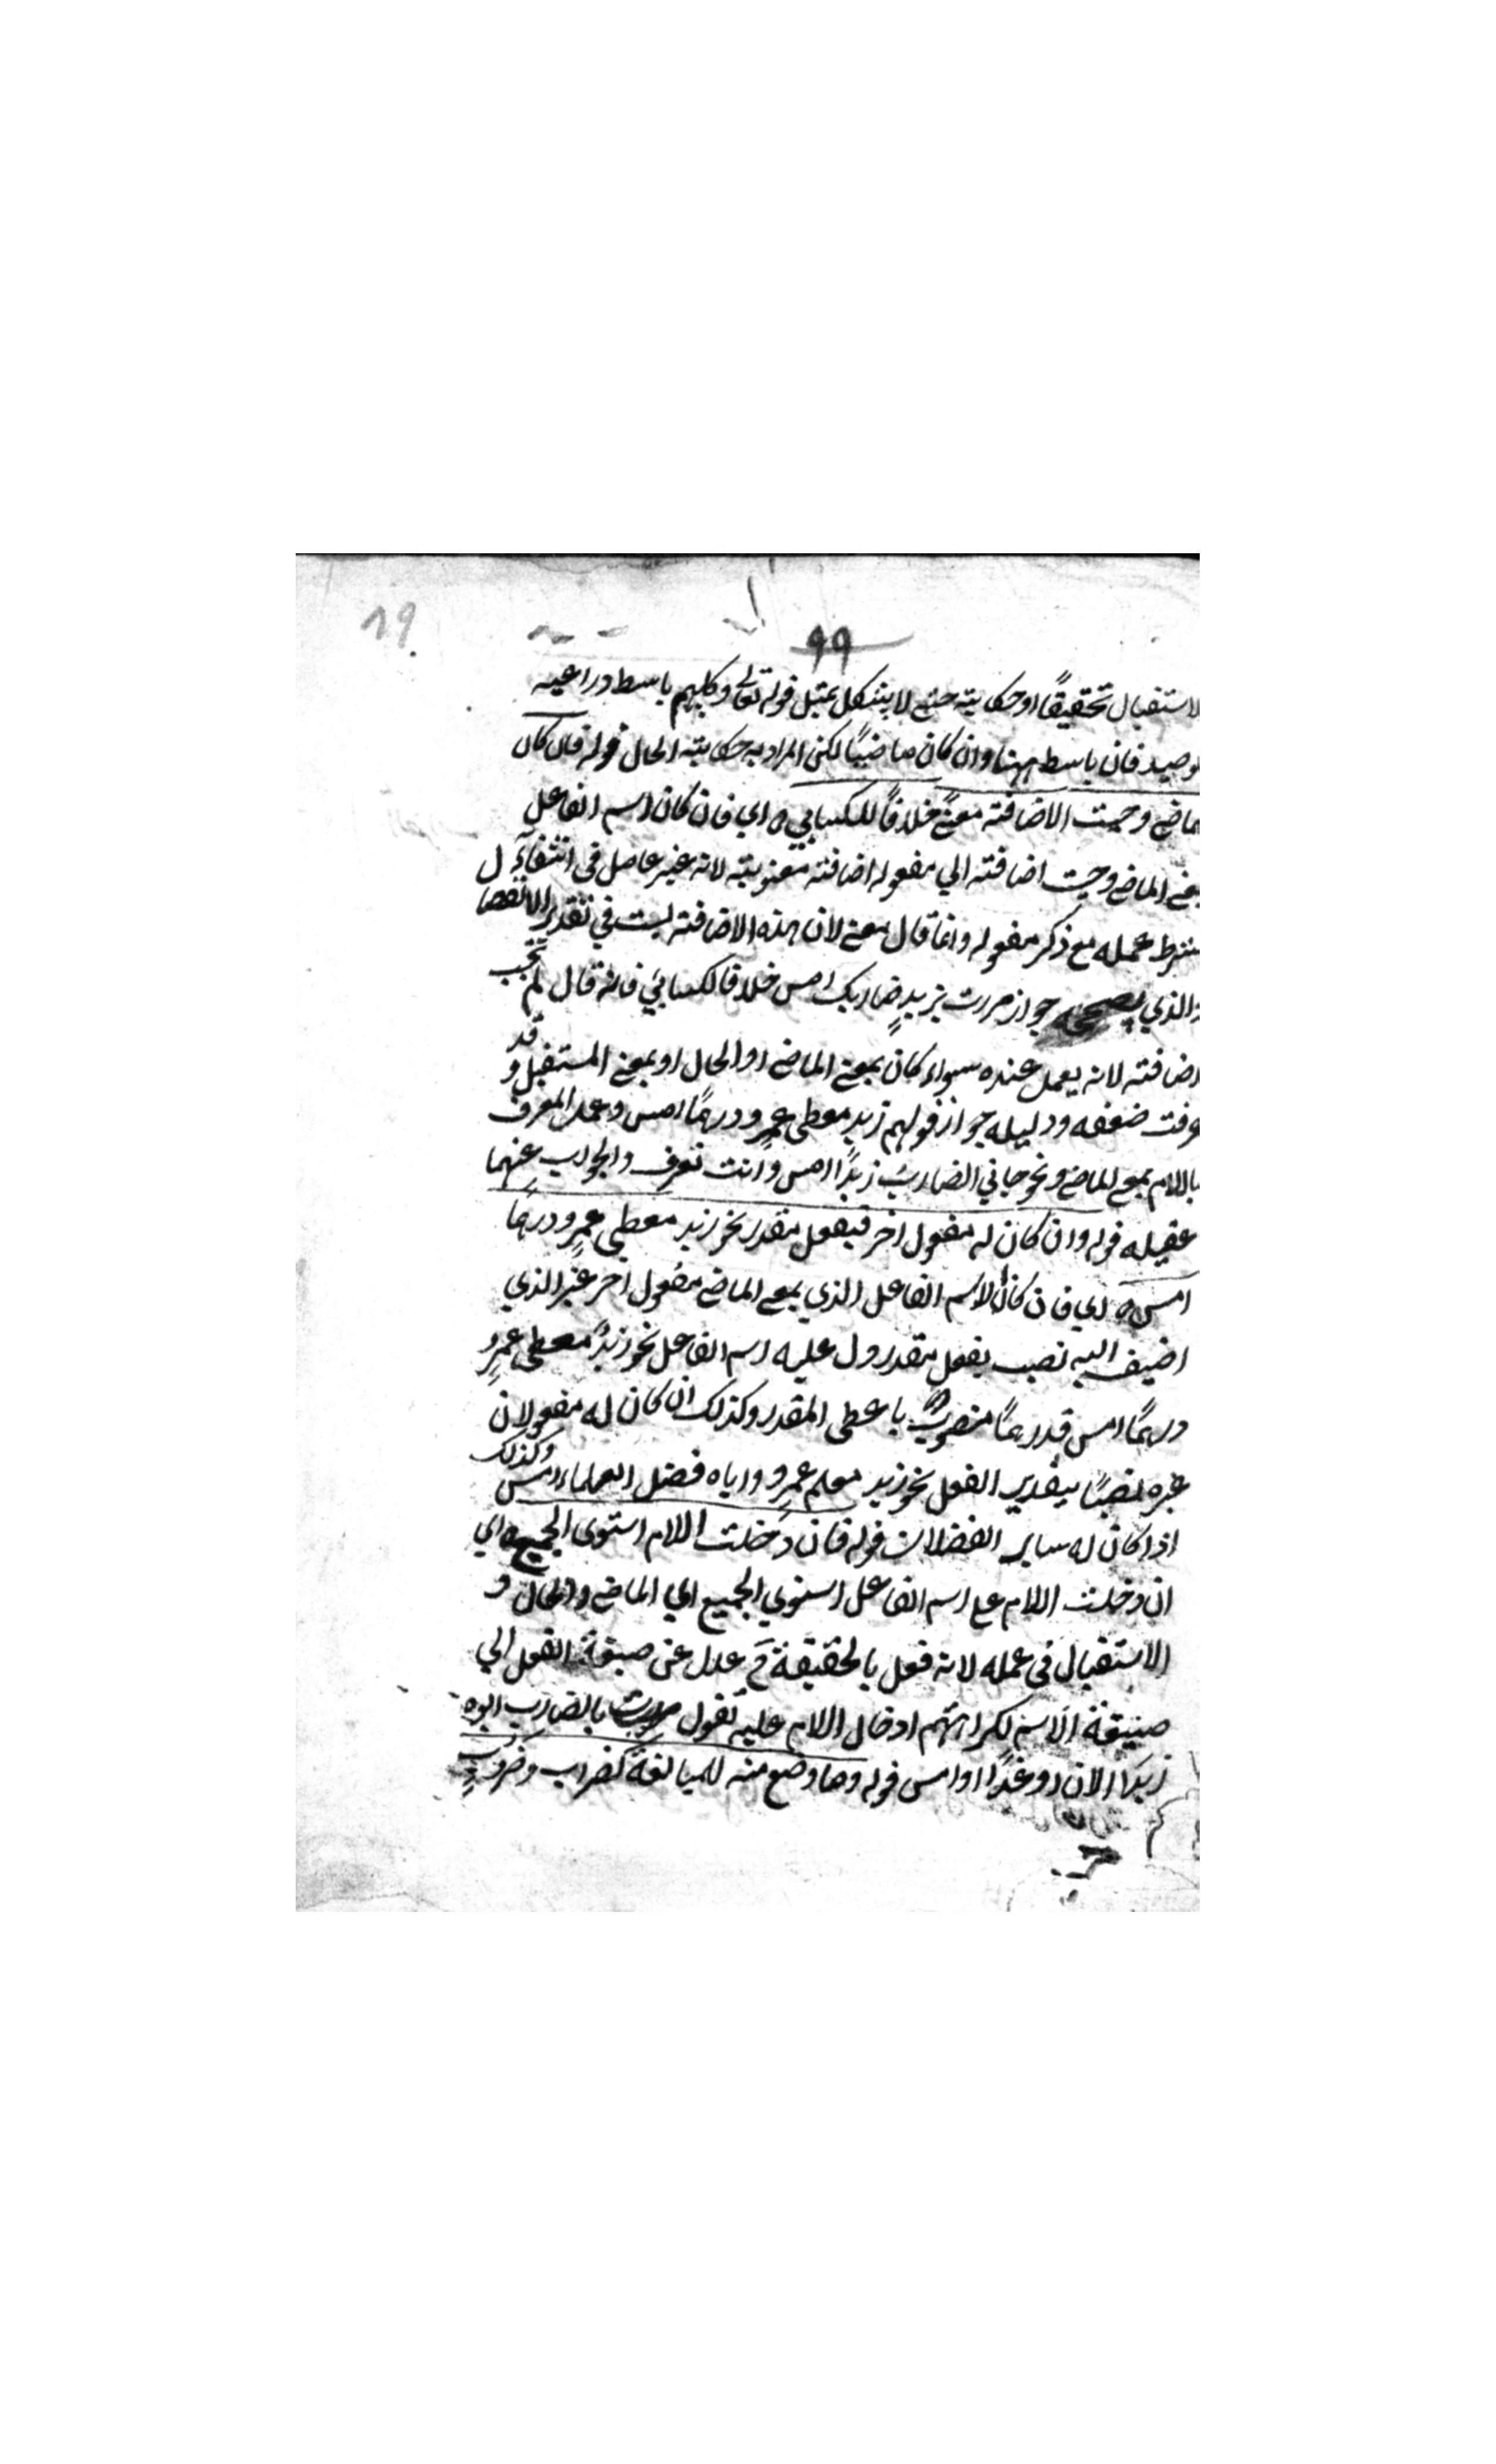 19
99
لاستقبال تحقيقًا او حكاية حتى لا يشكل بمثل قوله تعالى وكلبهم باسط ذراعيه
لوصيد فان باسط ههنا وان كان ماضيًا لكن المراد به حكاية الحال قوله فان كان
لماضي وجبت الاضافة معنًى خلافًا للكسايي ه اي فان كان اسم الفاعل
بمعنى الماضي وجبت اضافته الي مفعوله اضافة معنوية لانه غير عامل في انتفآء
شرط عمله مع ذكر مفعوله وانما قال معنى لان هذه الاضافة ليست في تقدير الانفصال
والذي يصححه جواز مررت بزيدٍ ضاربك امس خلافا لكسائي فانه قال لم تجب
اضافته لانه يعمل عنده سواء كان بمعنى الماضي او الحال او بمعنى المستقبل وقد
عرفت ضعفه ودليله جواز قولهم زيد معطي عمرٍو درهمًا امس وعمل المعرف
باللام بمعنى الماضي ونحو جاني الضارب زيدًا امس وانت تعرف والجواب عنهما
عقيله قوله وان كان له مفعول اخر فبفعل مقدر نحو زيد معطي عمرٍو درهمًا
امس ه اي فان كان لاسم الفاعل الذي بمعنى الماضي مفعول اخر غير الذي
اضيف اليه نصب بفعل مقدر دل عليه اسم الفاعل نحو زيدٌ معطي عمرٍو
درهمًا امس فدرهمًا منصوبٌ باعطى المقدر وكذلك ان كان له مفعولان
غيره نصبًا بتقدير الفعل نحو زيد معلم عمرٍو اياه فضل العلماء امس وكذلك
اذا كان له ساير الفضلات قوله فان دخلت اللام استوى الجميع ه اي
ان دخلت اللام على اسم الفاعل استوي الجميع اي الماضي والحال و
الاستقبال في عمله لانه فعل بالحقيقة ثم عدل عن صيغة الفعل الي
صيغة الاسم لكراهتهم ادخال اللام عليه تقول مررت بالضارب ابوه
زيدًا الان او غدًا او امس قوله وما وضع منه للمبالغة كضراب وضروب